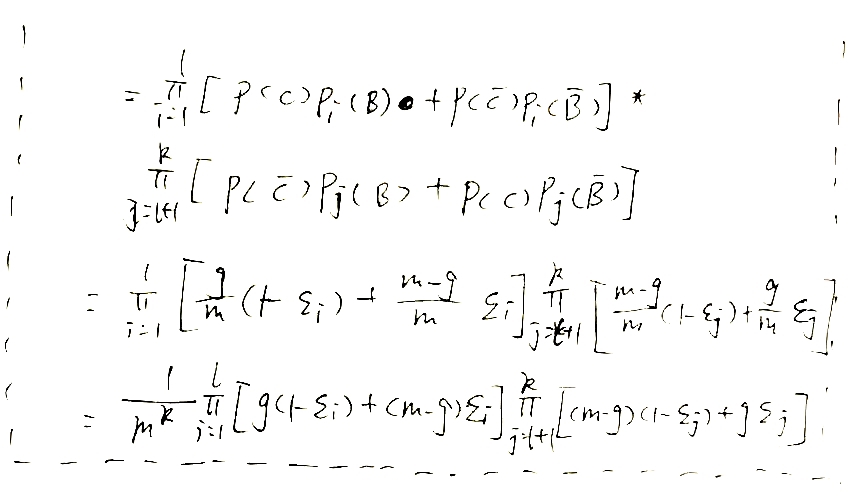 = ∏_{i=1}^{l} [ P(C) P_i(B) + P(C̄) P_i(B̄) ] *
∏_{j=l+1}^{k} [ P(C̄) P_j(B) + P(C) P_j(B̄) ]
= ∏_{i=1}^{l} [ g/m (1-ε_i) + (m-g)/m ε_i ] ∏_{j=l+1}^{k} [ (m-g)/m (1-ε_j) + g/m ε_j ]
= 1/m^k ∏_{i=1}^{l} [ g(1-ε_i) + (m-g)ε_i ] ∏_{j=l+1}^{k} [ (m-g)(1-ε_j) + g ε_j ]